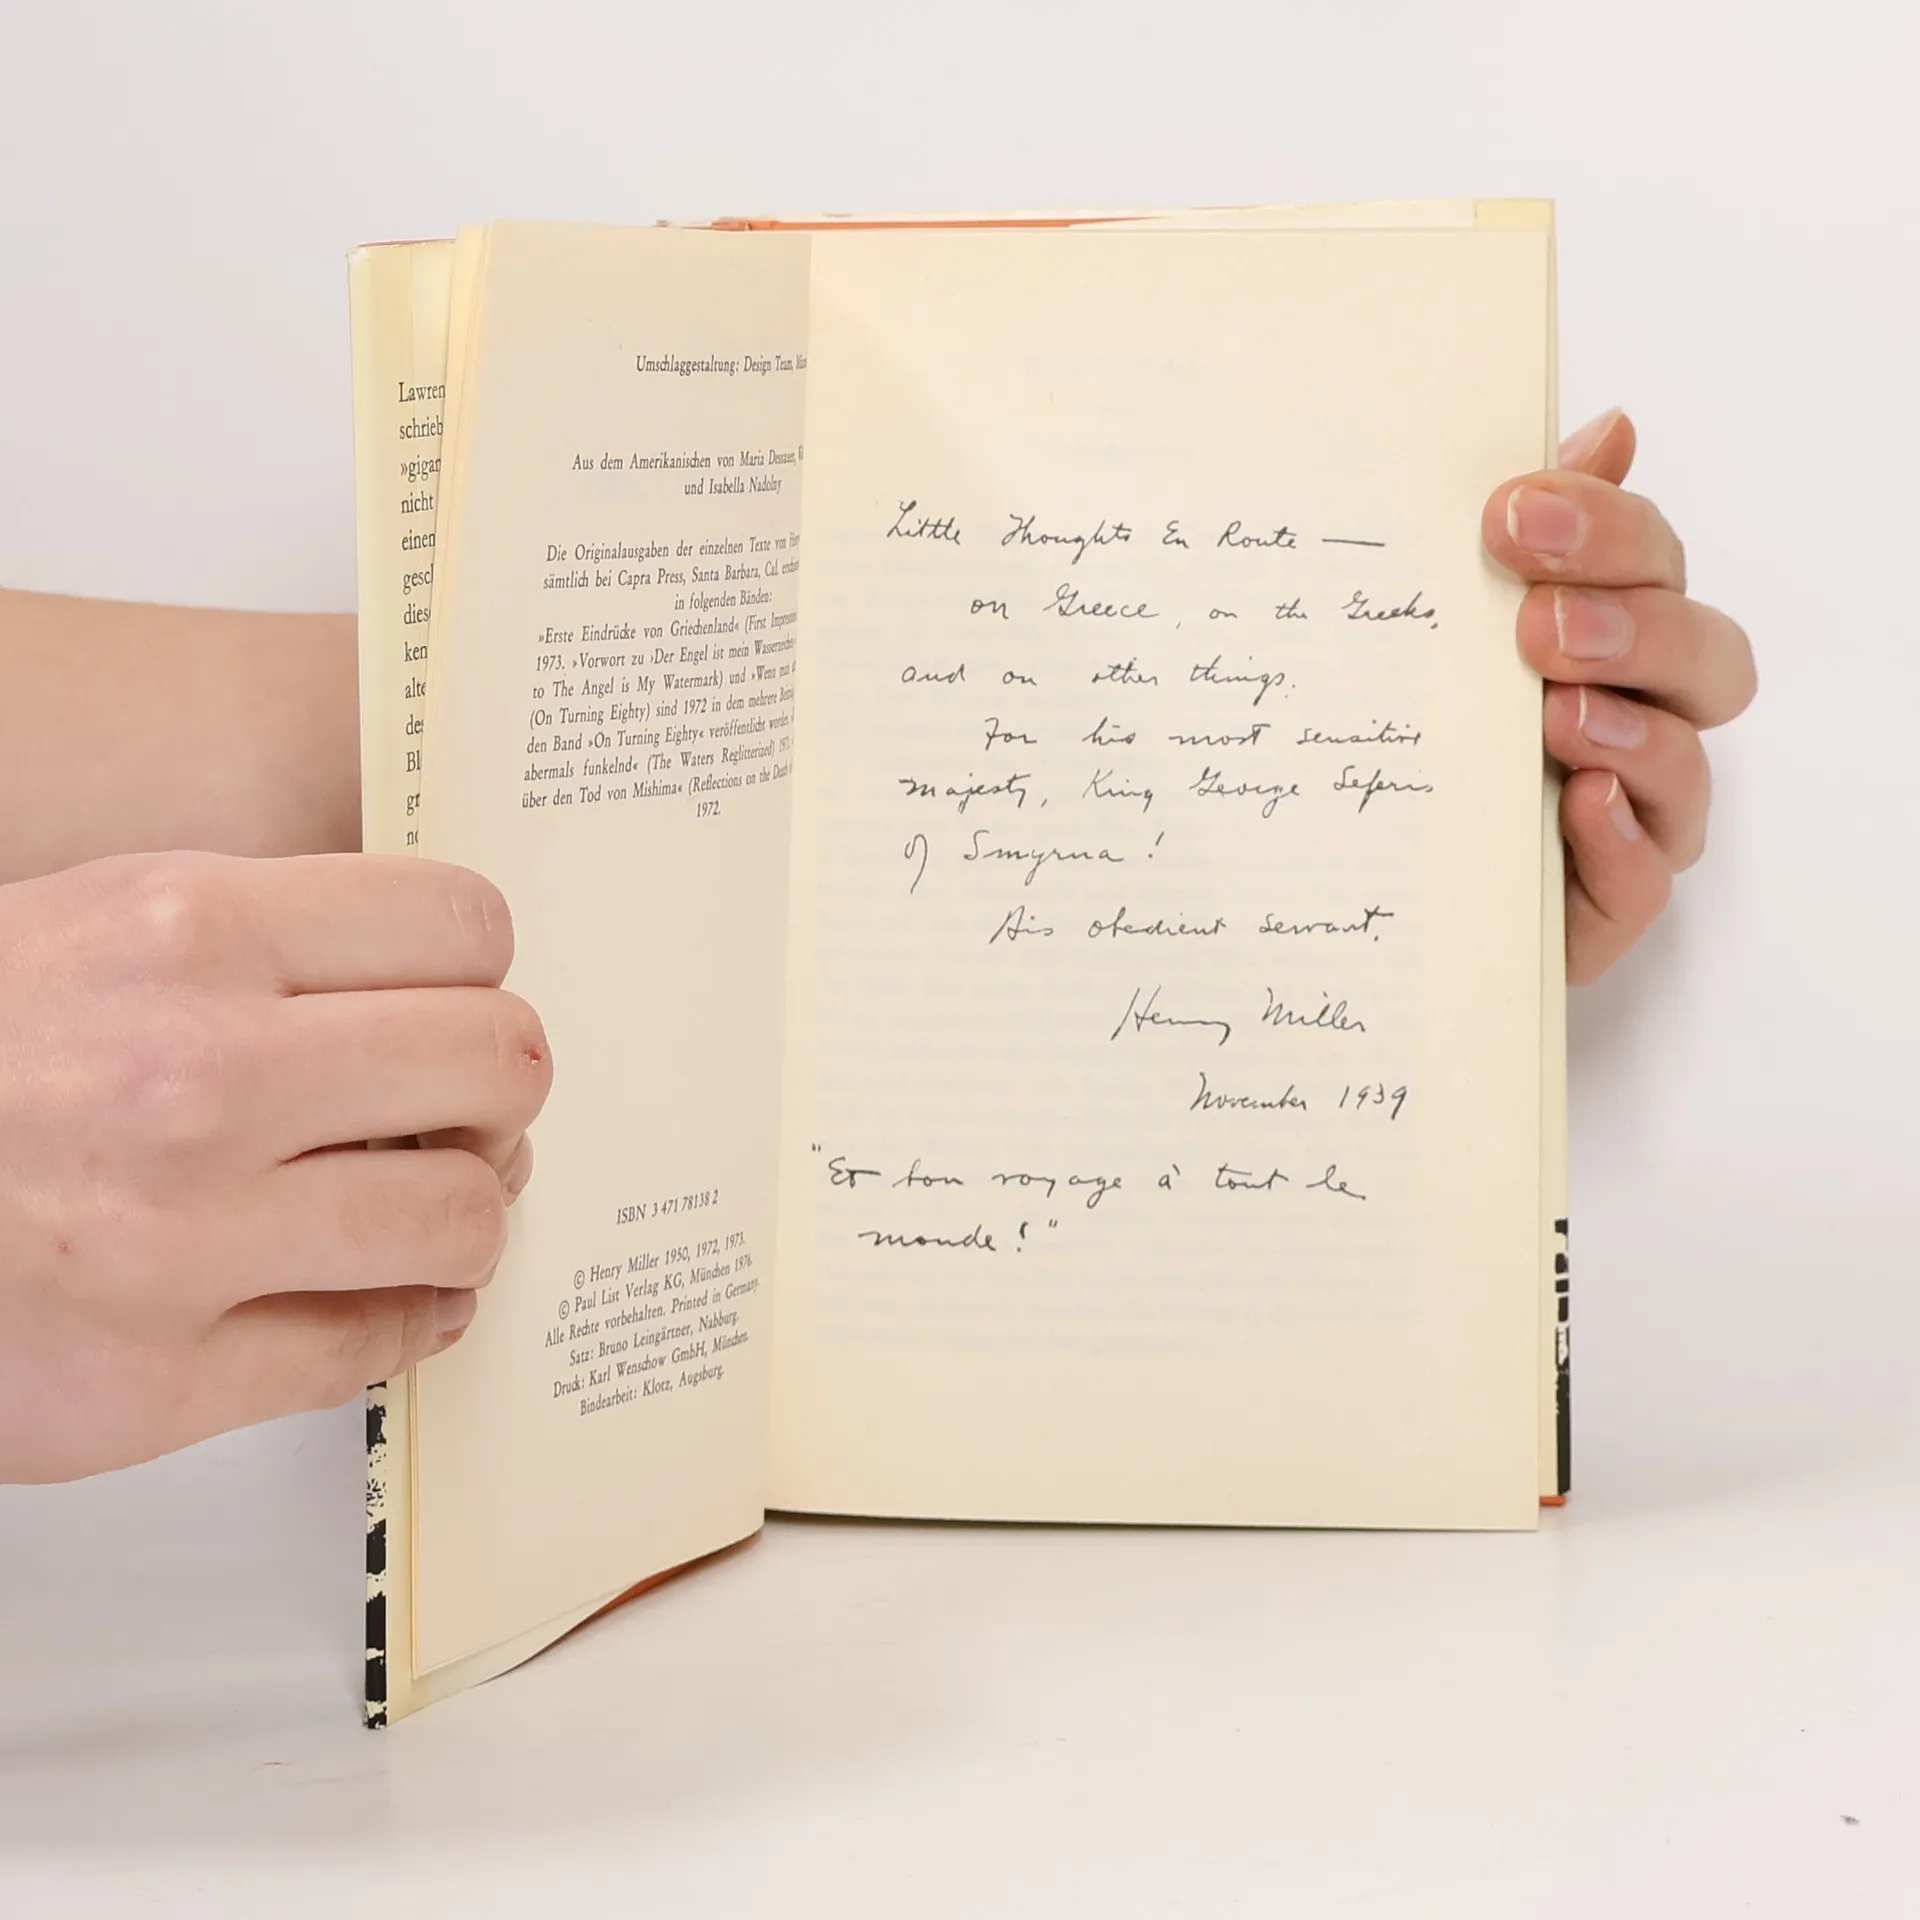 Lawren
schrieb
»gigan
nicht
einen
gesch
diese
ken
alte
des
Bl
gr
no
Umschlaggestaltung: Design Team,
Aus dem Amerikanischen von Maria Dessauer,
und Isabella Nadolny
Die Originalausgaben der einzelnen Texte von
sämtlich bei Capra Press, Santa Barbara, Cal.
in folgenden Bänden:
»Erste Eindrücke von Griechenland« (First
1973. »Vorwort zu ›Der Engel ist mein Wasserzeichen
to The Angel is My Watermark) und »Wenn
(On Turning Eighty) sind 1972 in dem mehrere
den Band »On Turning Eighty« veröffentlicht worden.
abermals funkelnd« (The Waters Reglitterized)
über den Tod von Mishima« (Reflections on the Death
1972.
ISBN 3 471 78138 2
© Henry Miller 1950, 1972, 1973.
© Paul List Verlag KG, München 1976.
Alle Rechte vorbehalten. Printed in Germany.
Satz: Bruno Leingärtner, Nabburg.
Druck: Karl Wenschow GmbH, München.
Bindearbeit: Klotz, Augsburg.
Little Thoughts En Route —
on Greece, on the Greeks,
and on other things.
For his most sensitive
majesty, King George Seferis
of Smyrna!
His obedient servant,
Henry Miller
November 1939
"Et bon voyage à tout le
monde!"